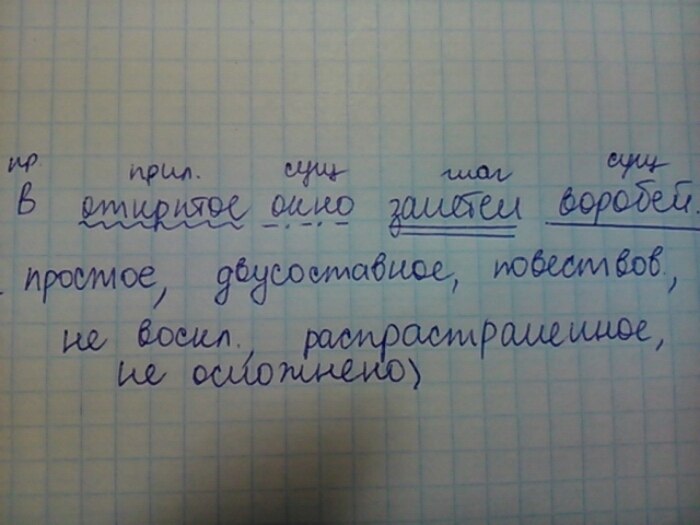 пр прил. сущ глаг сущ
В открытое окно залетел воробей.
простое, двусоставное, повествов.,
не воскл., распрастраненное,
не осложнено)